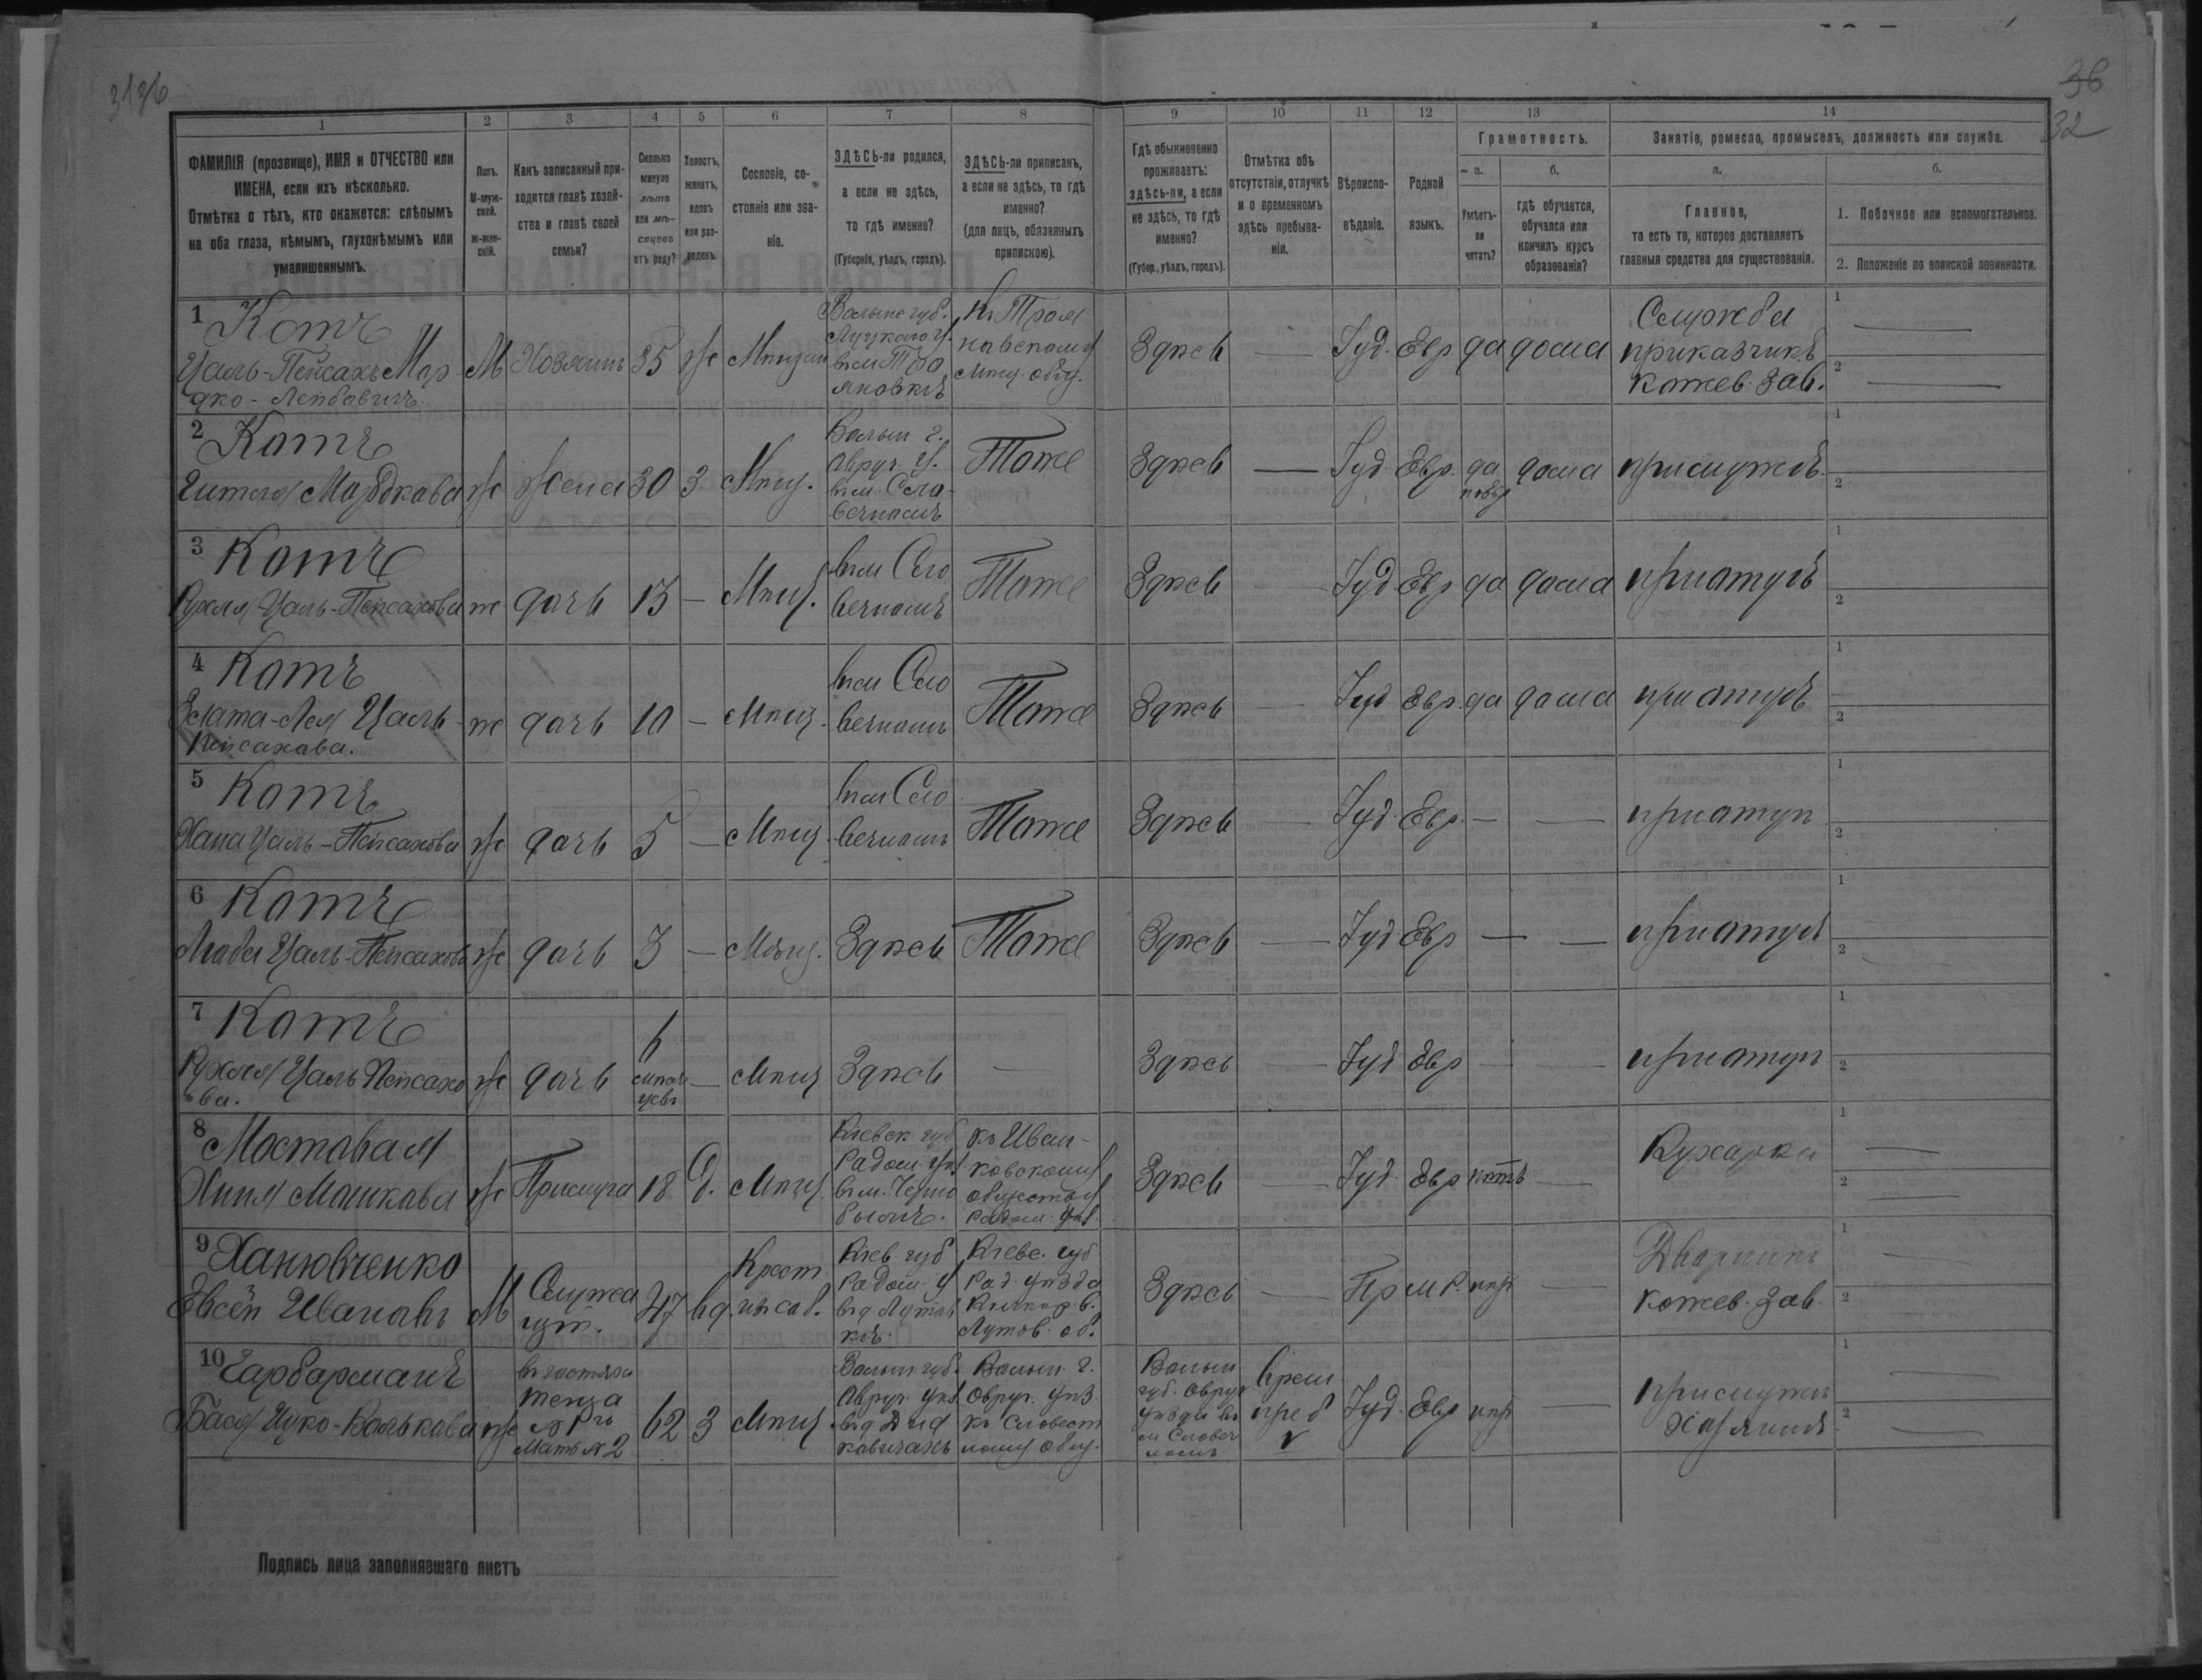 3136
36
32
1
2
3
4
5
6
7
8
9
10
11
12
13
14
ФАМИЛІЯ (прозвище), ИМЯ и ОТЧЕСТВО или
ИМЕНА, если ихъ нѣсколько.
Отмѣтка о тѣхъ, кто окажется: слѣпымъ
на оба глаза, нѣмымъ, глухонѣмымъ или
умалишеннымъ.
Полъ.
М-муж-
ской.
ж-жен-
скій.
Какъ записанный при-
ходится главѣ хозяй-
ства и главѣ своей
семьи?
Сколько
минуло
лѣтъ
или мѣ-
сяцевъ
отъ роду?
Холостъ,
женатъ,
вдовъ
или раз-
веденъ.
Сословіе, со-
стояніе или зва-
ніе.
ЗДѢСЬ-ли родился,
а если не здѣсь,
то гдѣ именно?
(Губернія, уѣздъ, городъ).
ЗДѢСЬ-ли приписанъ,
а если не здѣсь, то гдѣ
именно?
(для лицъ, обязанныхъ
припискою).
Гдѣ обыкновенно
проживаетъ:
здѣсь-ли, а если
не здѣсь, то гдѣ
именно?
(Губер., уѣздъ, городъ).
Отмѣтка объ
отсутствіи, отлучкѣ
и о временномъ
здѣсь пребыва-
ніи.
Вѣроиспо-
вѣданіе.
Родной
языкъ.
Грамотность.
а.
Умѣетъ-
ли
читать?
б.
гдѣ обучается,
обучался или
кончилъ курсъ
образованія?
Занятіе, ремесло, промыселъ, должность или служба.
а.
Главное,
то есть то, которое доставляетъ
главныя средства для существованія.
б.
1. Побочное или вспомогательное.
2. Положеніе по воинской повинности.
1 Котъ
Цаль-Пейсахъ Мор
дко-Лейбовичъ
М Хозяинъ 35 ж Мѣщан
Волынс губ.
Луцкаго у.
въ м Тро
яновкѣ
Къ Троя
новскому
Мѣщ. общ.
Здѣсь — Іуд. Евр да дома
Служба
приказчикъ
кожев. зав.
1 —
2 —
2 Котъ
Гитля Мордкова ж Жена 30 з Мѣщ.
Волын г.
Овруч у.
въ м. Сло
вечномъ
Тоже Здѣсь — Іуд. Евр. да дома при мужѣ.
1
2
3 Котъ
Рухля Цаль-Пейсахова ж дочь 13 — Мѣщ.
въ м Сло
вечномъ
Тоже Здѣсь — Іуд Евр да дома при отцѣ
1
2
4 Котъ
Злата-Лея Цаль-
Пейсахова.
ж дочь 10 — Мѣщ.
въ м Сло
вечномъ
Тоже Здѣсь — Іуд Евр. да дома при отцѣ
1
2
5 Котъ
Хана Цаль-Пейсахова ж дочь 5 — Мѣщ.
въ м Сло
вечномъ
Тоже Здѣсь — Іуд. Евр. — — при отцѣ
1
2
6 Котъ
Цаль-Пейсахова ж дочь 3 — Мѣщ. Здѣсь Тоже Здѣсь — Іуд Евр — — при отцѣ
1
2
7 Котъ
Рухля Цаль Пейсахо
ва.
ж дочь
6
мѣся
цевъ
— Мѣщ Здѣсь — Здѣсь — Іуд Евр — — при отцѣ
1
2
8 Мостовая
Хиня Мошкова ж Прислуга 18 д. Мѣщ
Кіевск губ
Радом. уѣз
въ м. Черно
былѣ.
къ Иван-
ковскому
обществу
Радом. уѣз.
Здѣсь — Іуд. Евр нѣтъ —
Кухарка
1 —
2 —
9 Ханювченко
Евсей Ивановъ М 47 вд.
Крест.
Кіев губ
Радом. у
въ д Лутов
кѣ.
Кіевс. губ
Рад уѣзда
Лутов. об.
Здѣсь — Пр м Р. —
Дворникъ
кожев. зав.
1 —
2 —
10 Гарбарманъ
Бася Ицко-Волькова ж
Мать № 2
62 з Мѣщ
Волын губ.
Овруч. уѣз.
Волын. г.
Овруч. уѣз
къ Словечан
ному общ.
Волын.
губ. Овруч
уѣзда въ
м Словеч
номъ
Врем
преб
Іуд. Евр —
при мужѣ
1 —
2 —
Подпись лица заполнявшаго листъ